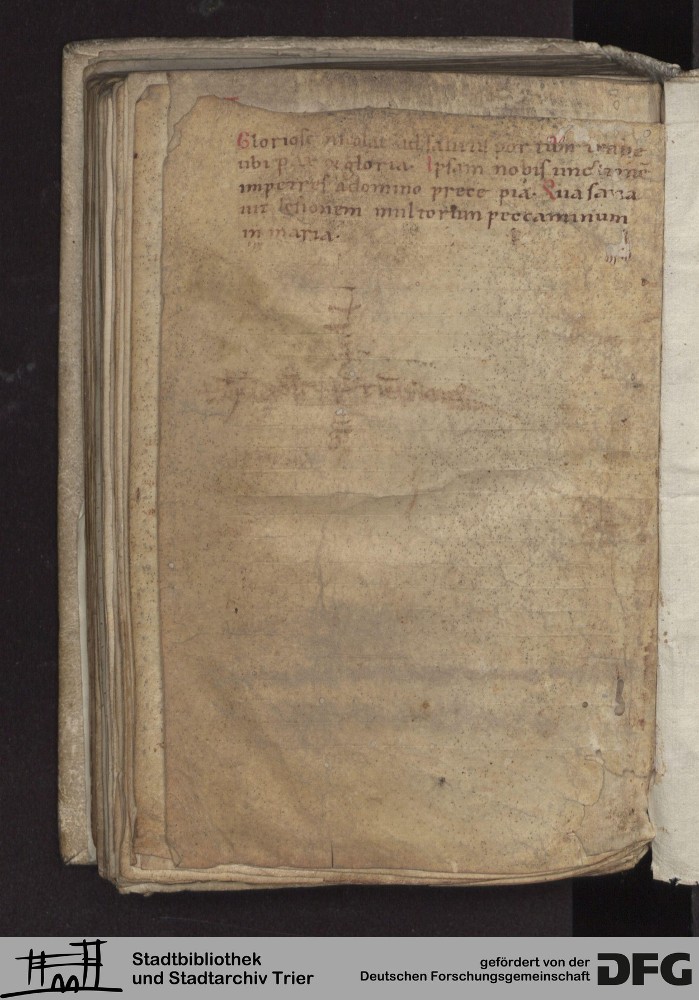 Gloriose nicolae ad salutis portum trahe
ubi pax & gloria. Ipsam nobis unctionē
impetres a domino prece pia. Qua sana
uit lesionem multorum peccaminum
in maria.
Stadtbibliothek
und Stadtarchiv Trier
gefördert von der
Deutschen Forschungsgemeinschaft
DFG